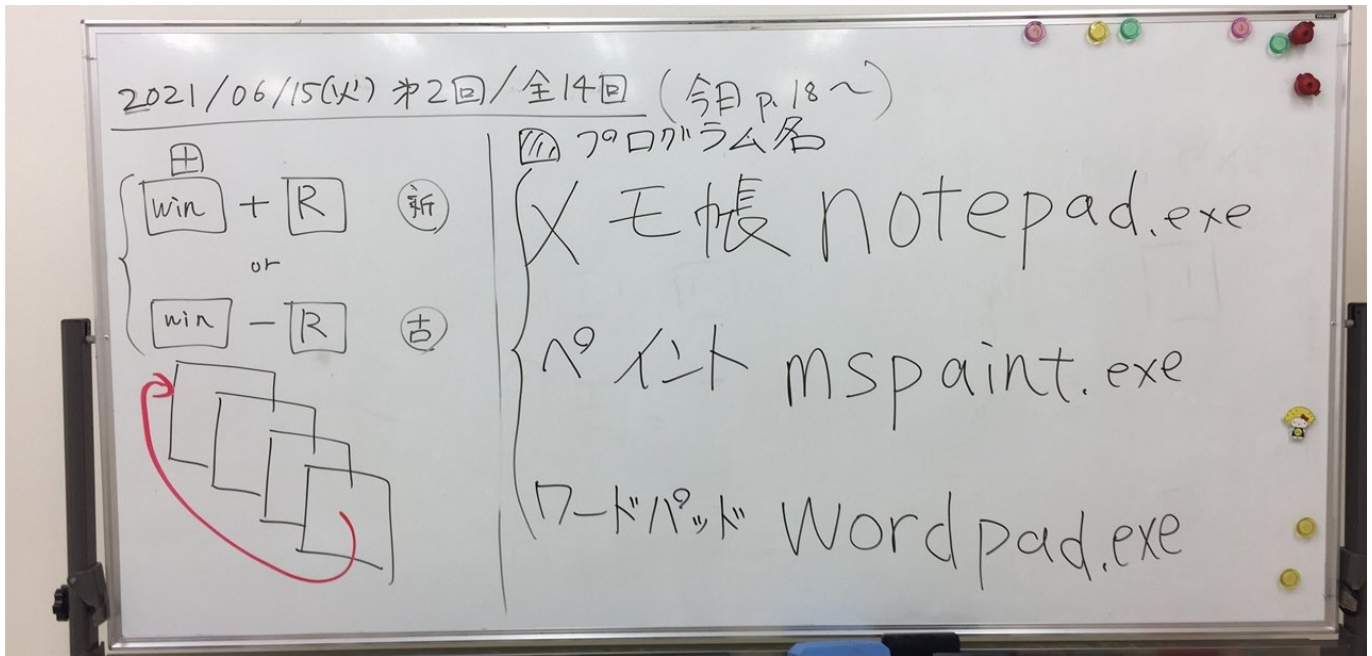 2021/06/15(火) 第2回/全14回 (今日 p.18〜)
win + R 新
or
win - R 古
プログラム名
メモ帳 notepad.exe
ペイント mspaint.exe
ワードパッド wordpad.exe